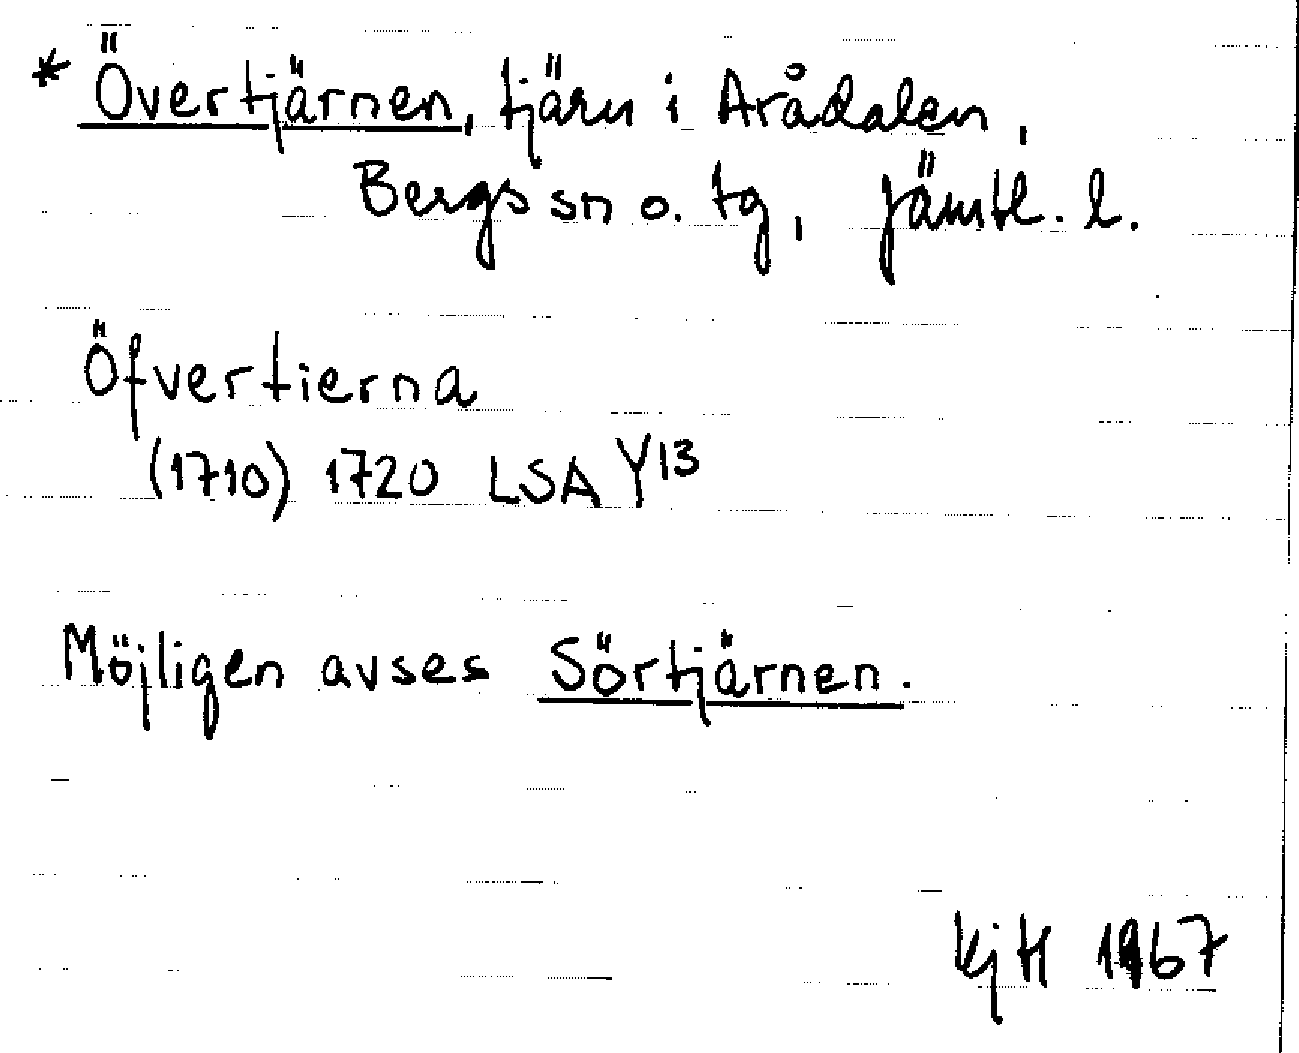 * Övertjärnen, tjärn i Arådalen,
Bergs sn o. tg, Jämtl. l.
Öfvertierna
(1710) 1720 LSA Y13
Möjligen avses Sörtjärnen.
KjH 1967